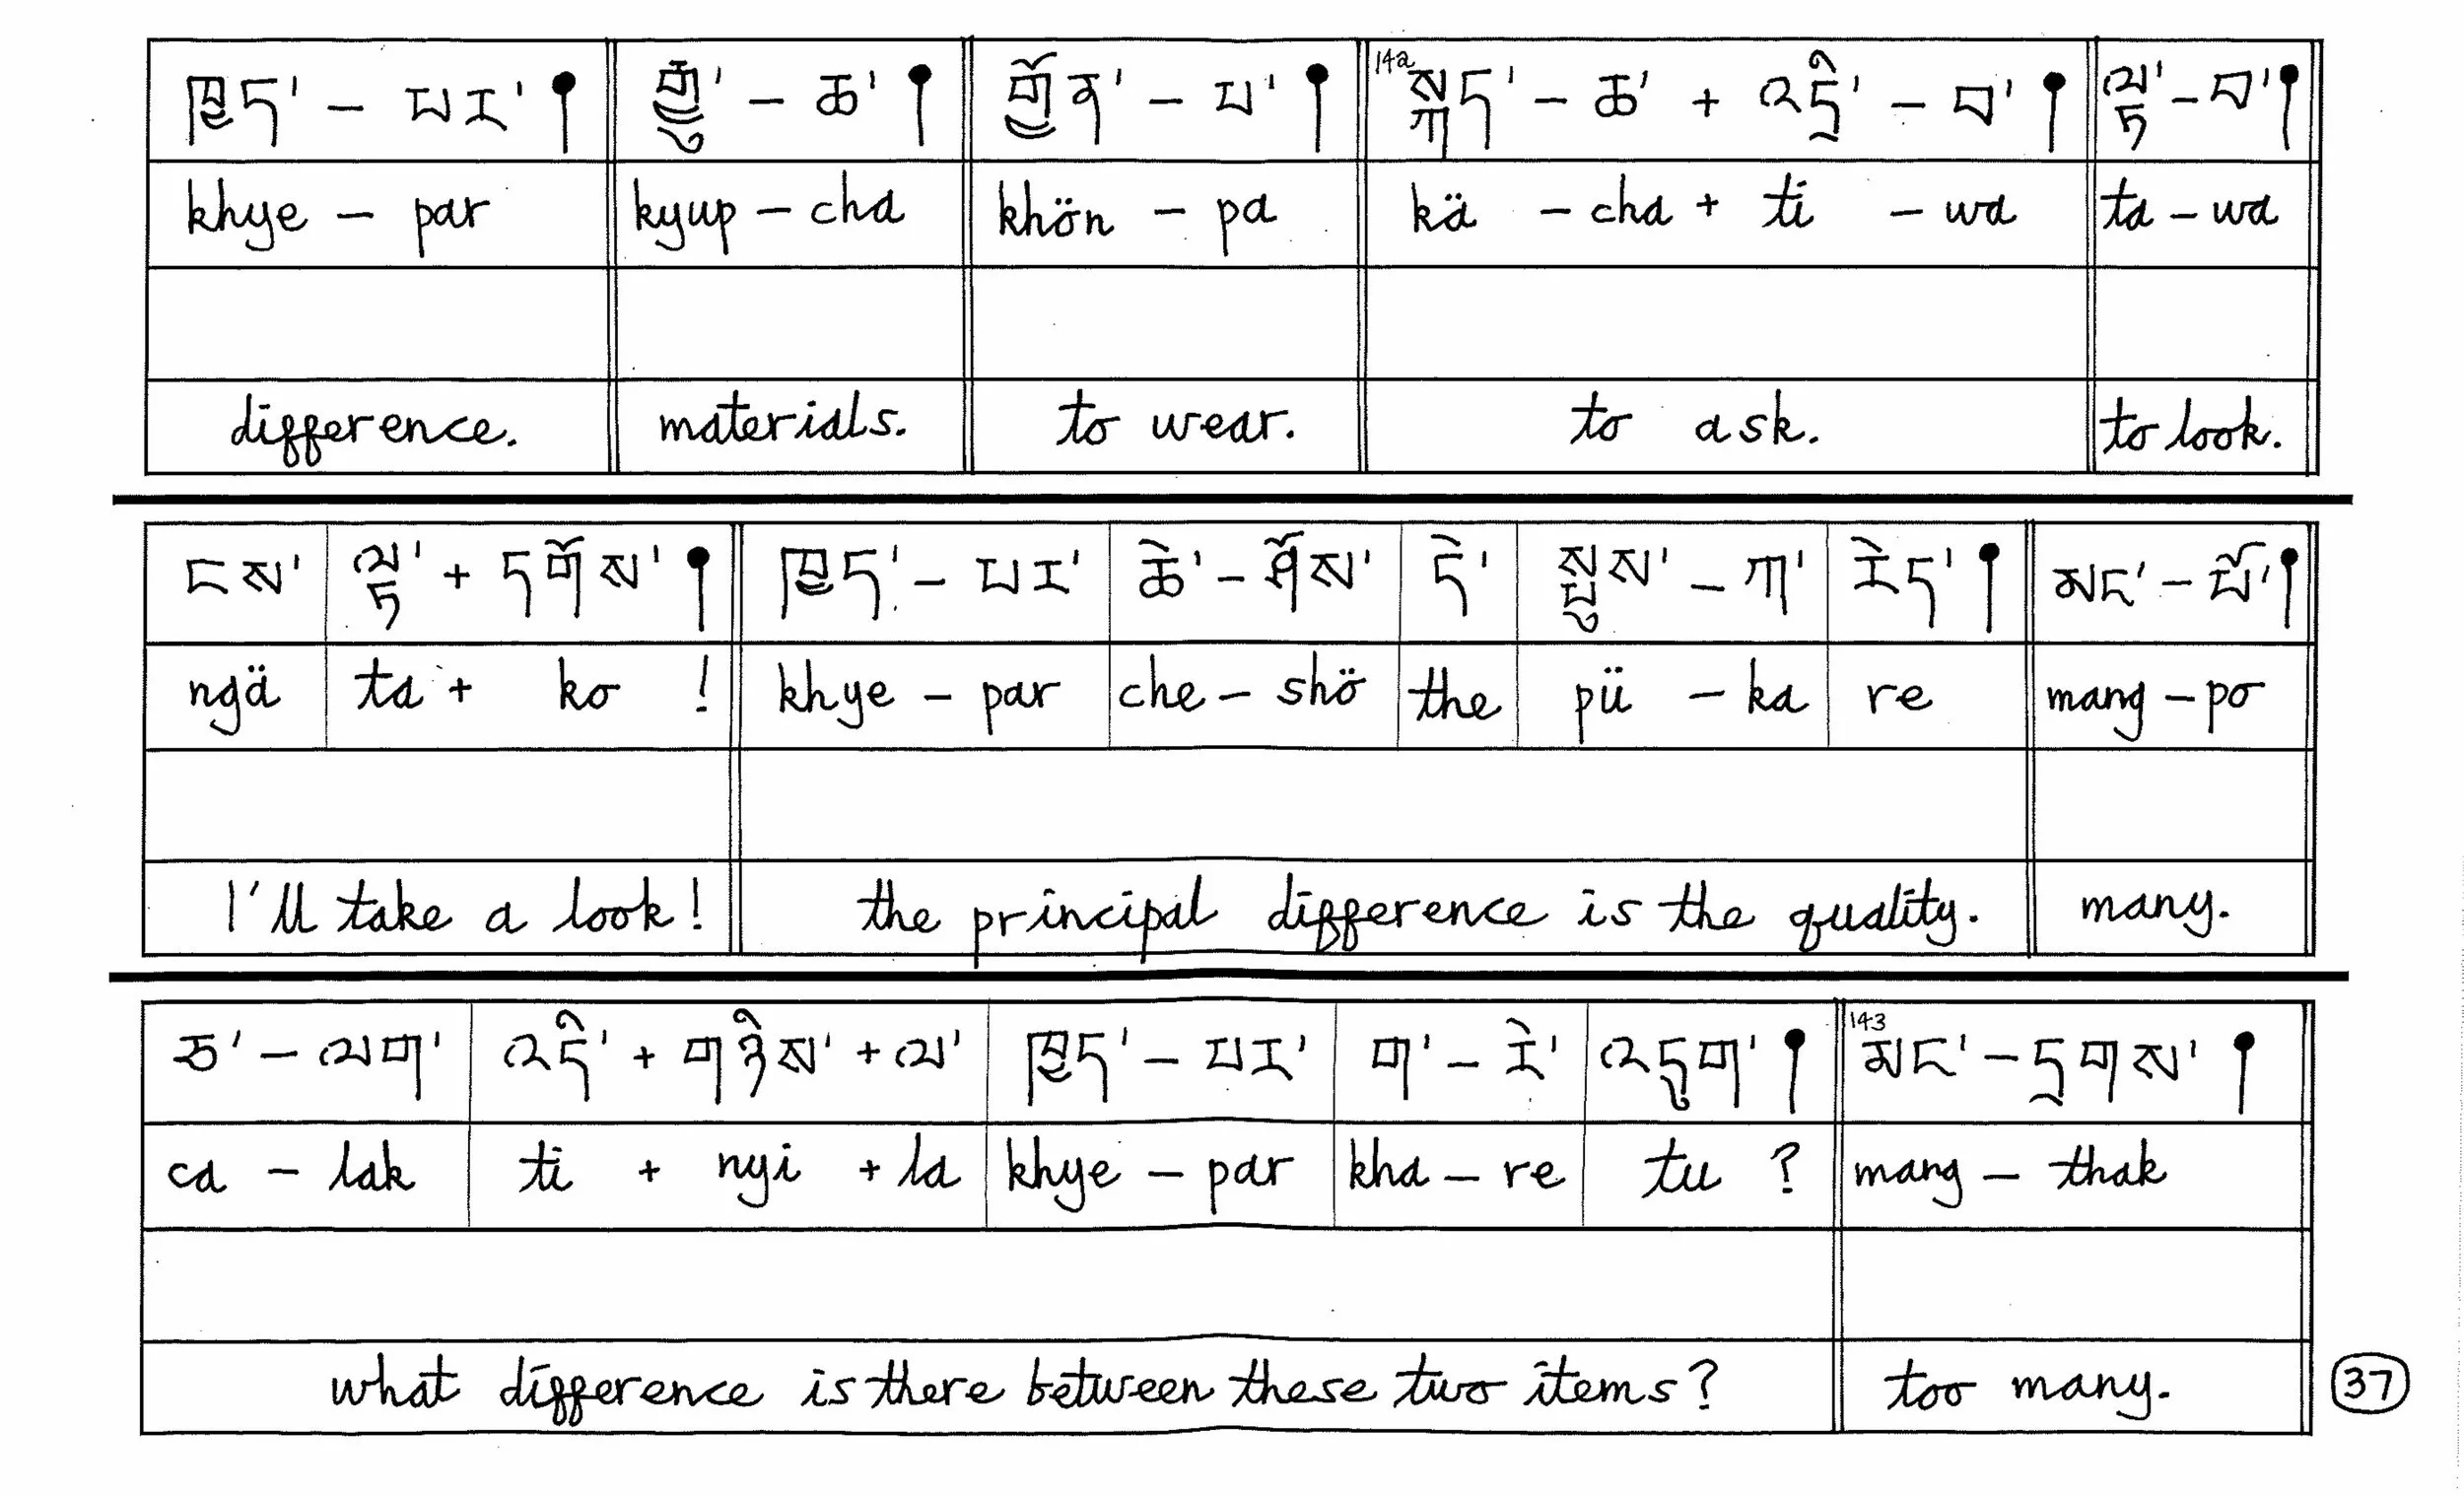 ཁྱད་ – པར་ ། རྒྱུ་ – ཆ་ ། གྱོན་ – པ་ ། 142 སྐད་ – ཆ་ + འདྲི་ – བ་ ། ལྟ་ – བ་ །
khye – par kyup – cha khön – pa kä – cha + ti – wa ta – wa
difference. materials. to wear. to ask. to look.
ངས་ ལྟ་ + དགོས་ ། ཁྱད་ – པར་ ཆེ་ – ཤོས་ དེ་ སྤུས་ – ཀ་ རེད་ ། མང་ – པོ་ །
ngä ta + ko ! khye – par che – shö the pü – ka re mang – po
I'll take a look! the principal difference is the quality. many.
ཅ་ – ལག་ འདི་ + གཉིས་ + ལ་ ཁྱད་ – པར་ ག་ – རེ་ འདུག་ ། 143 མང་ – དྲགས་ །
ca – lak ti + nyi + la khye – par kha – re tu ? mang – thak
what difference is there between these two items? too many.
37